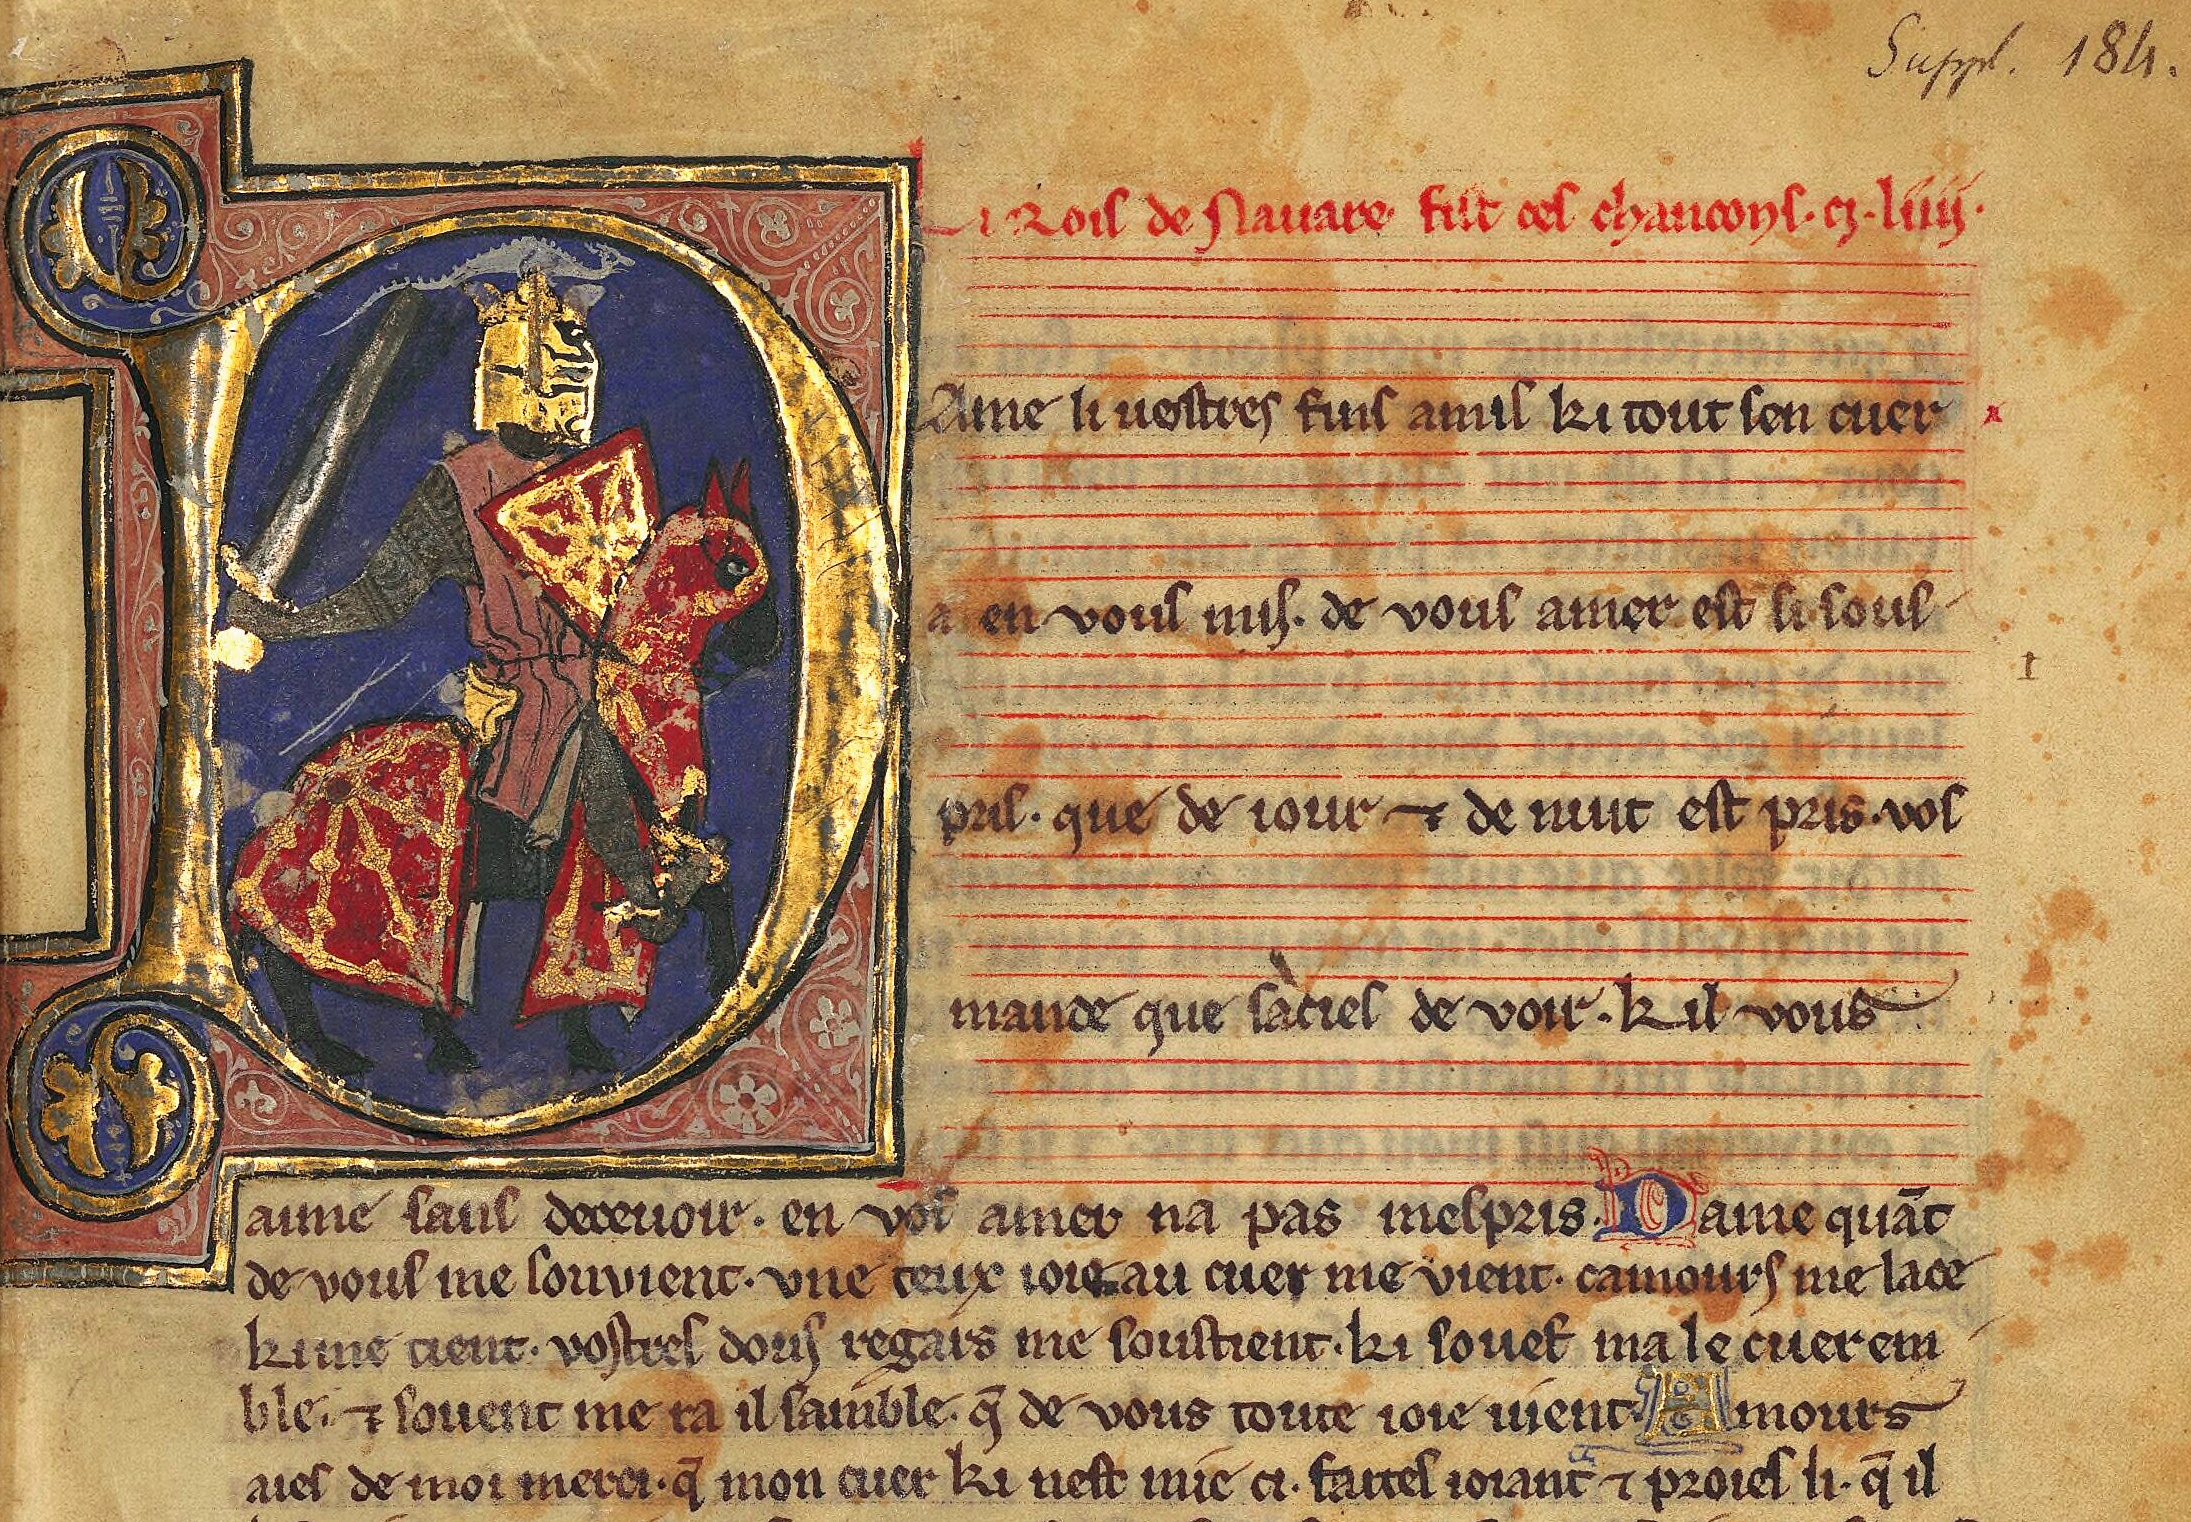 Suppl. 184.
Li Rois de Nauare fist ces chancons. et. liiij.
Dame li vostres fins amis ki tout sen cuer
a en vous mis. de vous amer est si sous
pris. que de iour ⁊ de nuit est pris. vos
mande que sacies de voir. kil vous
aime sans deceuoir. en vos amer na pas mespris. Dame quāt
de vous me souvient. vne teux ioie au cuer me vient. camours me lace
ki me tient. vostres dous regars me soustient. ki souef ma le cuer em
ble. ⁊ souent me ra il samble. q̄ de vous toute ioie uient. Amours
aies de moi merci. q̄ mon cuer ki nest mie ci. faites ioiant ⁊ proies li. q̄ il